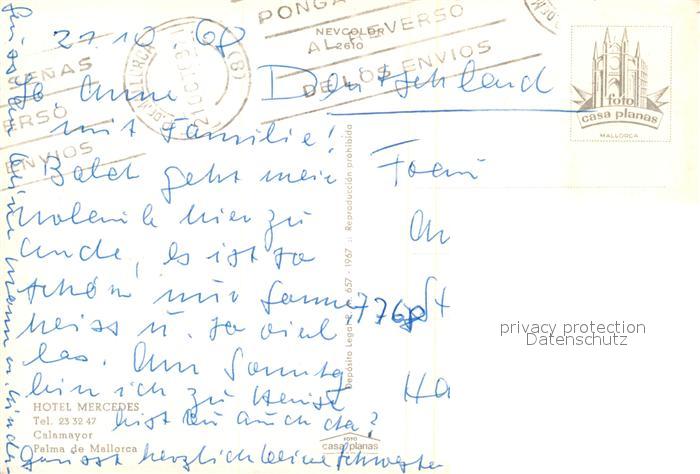 27.10.68
Deutschland
mit Familie!
Bald geht mein
hier zu
Ende, es ist so
schön nur Sonne
heiss u. so viel
los. Am Sonntag
bin ich zu Hause
bist du auch da?
grüsst herzlich deine Schwester
PONGA
AL REVERSO
DE LOS ENVIOS
ENVIOS
NEVCOLOR
2610
foto
casa planas
MALLORCA
Depósito Legal B. 657 - 1967 :: Reproducción prohibida
7768
privacy protection
Datenschutz
HOTEL MERCEDES
Tel. 23 32 47
Calamayor
Palma de Mallorca
FOTO
casa planas